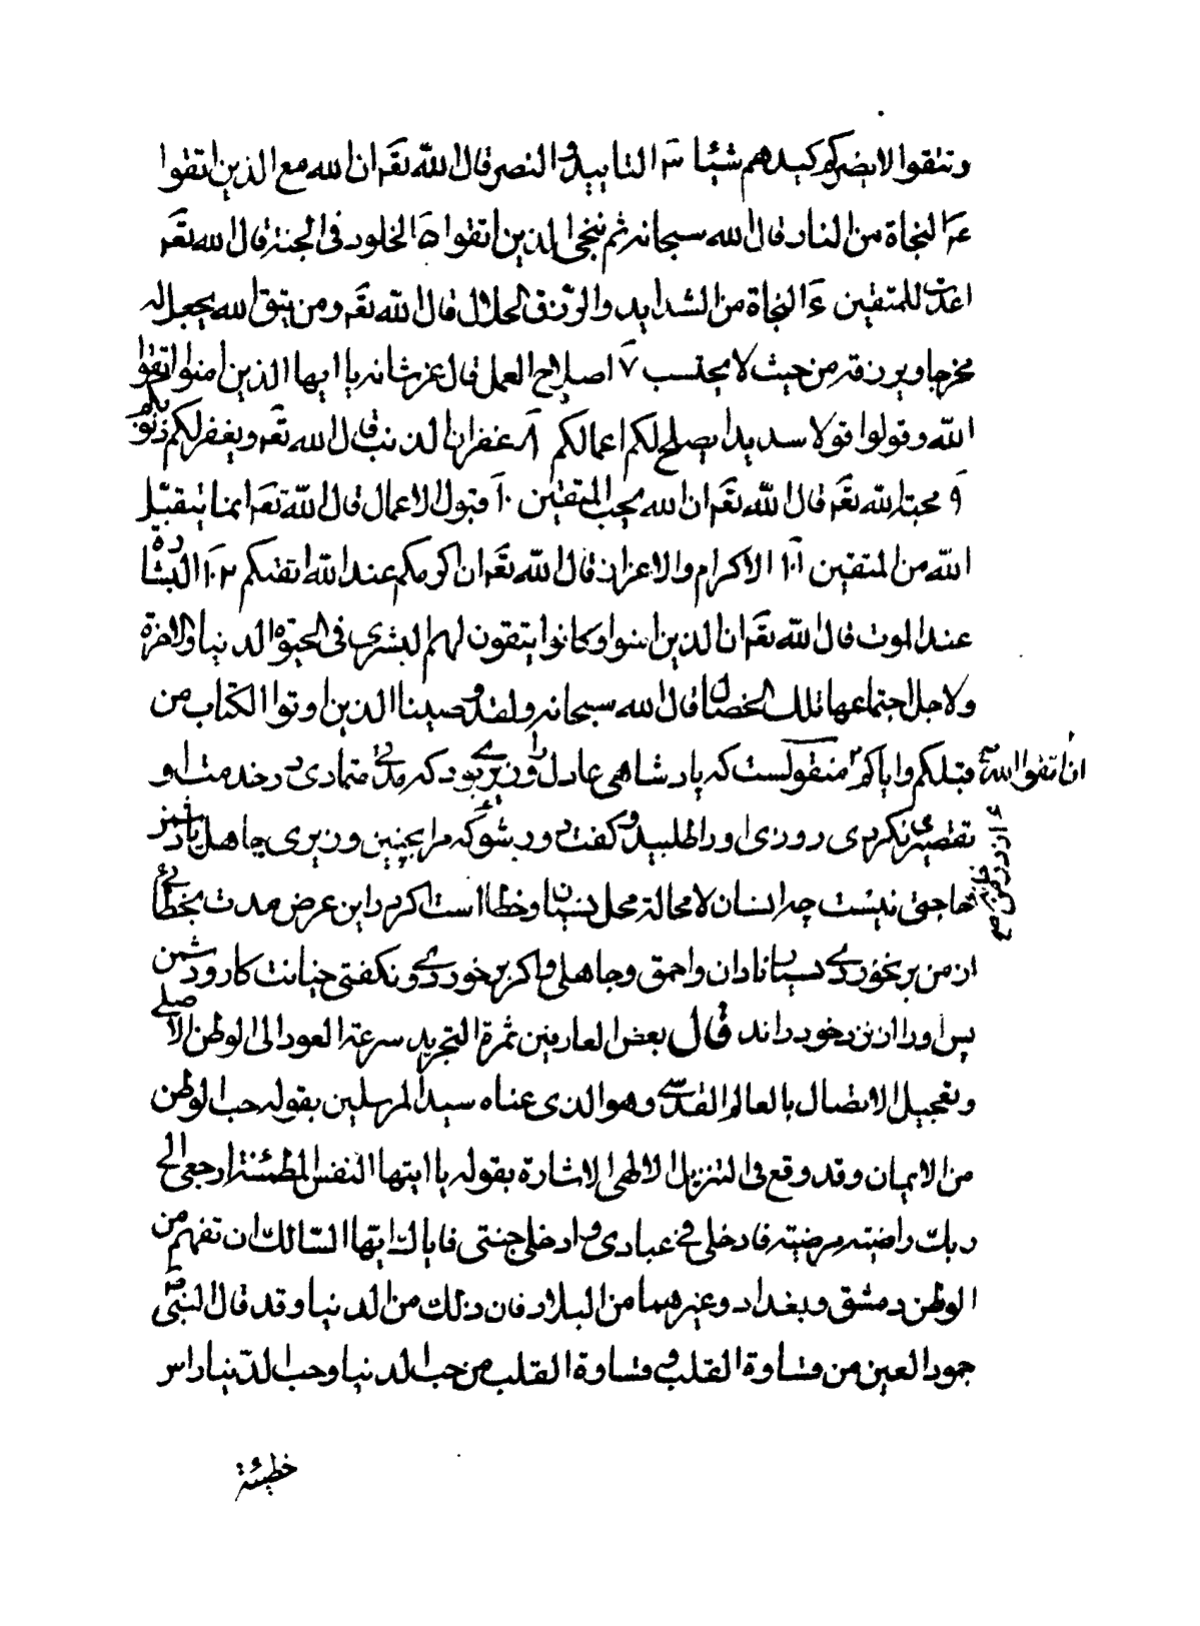 وتتقوا لا يضركم كيدهم شيئا ٣ التاييد والنصر قال الله تعم ان الله مع الذين اتقوا
٤ النجاة من النار قال الله سبحانه ثم ننجى الذين اتقوا ٥ الخلود فى الجنة قال الله تعم
اعدت للمتقين ٦ النجاة من الشدايد والرزق الحلال قال الله تعم ومن يتق الله يجعل له
مخرجا ويرزقه من حيث لا يحتسب ٧ اصلاح العمل قال عز شانه يا ايها الذين امنوا اتقوا
الله وقولوا قولا سديدا يصلح لكم اعمالكم ٨ غفران الذنب قال الله تعم ويغفر لكم ذنوبكم
٩ محبة الله تعم قال الله تعم ان الله يحب المتقين ١٠ قبول الاعمال قال الله تعم انما يتقبل
الله من المتقين ١١ الاكرام والاعزاز قال الله تعم ان اكرمكم عند الله اتقيكم ١٢ البشارة
عند الموت قال الله تعم ان الذين امنوا وكانوا يتقون لهم البشرى فى الحيوة الدنيا والاخرة
ولاجل اجتماعها تلك الخصال قال الله سبحانه ولقد وصينا الذين اوتوا الكتاب من
قبلكم واياكم ان اتقوا الله منقولست كه پادشاهى عادل را وزيرے بود كه مدتى متمادى در خدمت او
تقصيرى نكردى روزى او را طلبيد و كفت دور شو كه مرا بچنين وزيرى جاهل يا دشمن
حاجتى نيست چه انسان لا محالة محل نسيان و خطا است اكر در اين عرض مدت بخطائى
از من برنخوردے بسيار نادان و احمق و جاهلى و اكر برخوردے و نكفتى خيانت كار و دشمن
پس او را از نزد خود راند قال بعض العارفين ثمرة التجريد سرعة العود الى الوطن الاصلے
وتعجيل الاتصال بالعالم القدسے وهو الذى عناه سيد المرسلين بقوله حب الوطن
من الايمان وقد وقع فى التنزيل الالهى الاشارة بقوله يا ايتها النفس المطمئنة ارجعى الى
ربك راضية مرضية فادخلى فى عبادى وادخلى جنتى فاياك ايها السالك ان تفهم من
الوطن دمشق وبغداد وغيرهما من البلاد فان ذلك من الدنيا وقد قال النبى ص
جمود العين من قساوة القلب وقساوة القلب من حب الدنيا وحب الدنيا راس
خطيئة